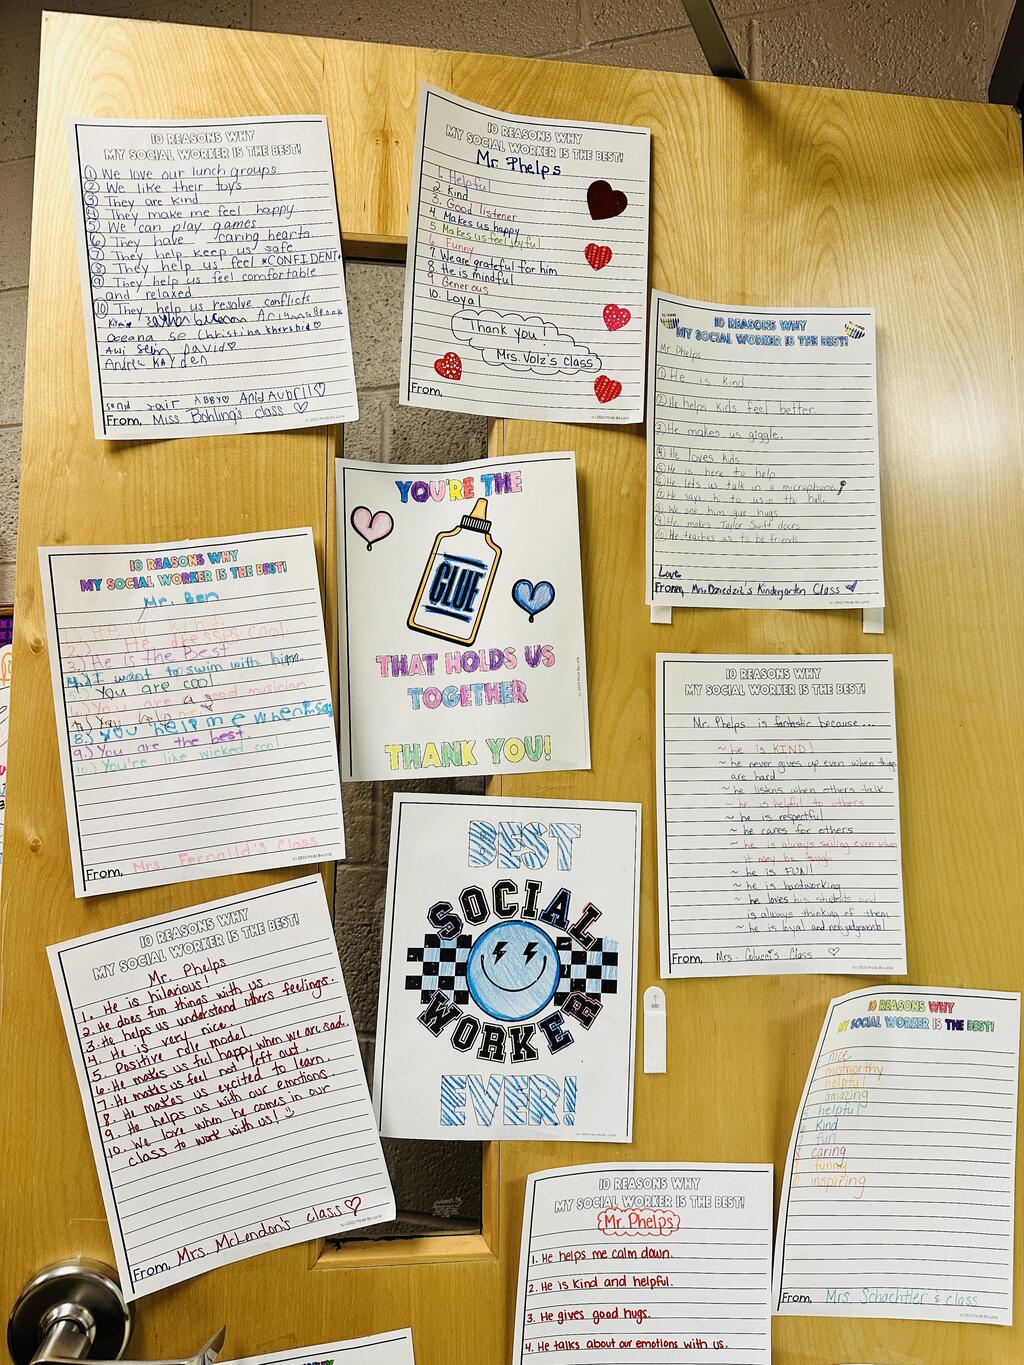 10 REASONS WHY
MY SOCIAL WORKER IS THE BEST!
1 We love our lunch groups
2 We like their toys
3 They are kind
4 They make me feel happy
5 We can play games
6 They have caring hearts
7 They help keep us safe
8 They help us feel *CONFIDENT*
9 They help us feel comfortable
and relaxed
10 They help us resolve conflicts
Arianna Brook
Oceana se Christina
Avi Sejn David♡
Andrea KAYDEN
ABBY♡ Anid Aubri
From, Miss Bohling's class ♡
10 REASONS WHY
MY SOCIAL WORKER IS THE BEST!
Mr. Phelps
1. Helpful
2. Kind
3. Good listener
4. Makes us happy
5. Makes us feel joyful
6. Funny
7. We are grateful for him
8. He is mindful
9. Generous
10. Loyal
Thank you!
Mrs. Volz's class
From,
10 REASONS WHY
MY SOCIAL WORKER IS THE BEST!
Mr. Phelps
1 He is kind
2 He helps kids feel better.
3 He makes us giggle.
4 He loves kids
5 He is here to help
6 He lets us talk in a microphone
7 He says hi to us in the hall.
8 We see him give hugs
9 He makes Taylor Swift doors
10 He teaches us to be friends
Love
From, Mrs. Dziedzic's Kindergarten Class
YOU'RE THE
GLUE
THAT HOLDS US
TOGETHER
THANK YOU!
10 REASONS WHY
MY SOCIAL WORKER IS THE BEST!
Mr. Ben
2.) He dresses cool
3.) He is the Best
4.) I want to swim with him.
You are cool
6.) You are a good musician
7.) You help me
8.) You help me when I'm sad
9.) You are the best
10.) You're like wicked cool
From, Mrs. Fernalld's Class
10 REASONS WHY
MY SOCIAL WORKER IS THE BEST!
Mr. Phelps is fantastic because...
~ he is KIND!
~ he never gives up even when things
are hard
~ he listens when others talk
~ he is helpful to others
~ he is respectful
~ he cares for others
~ he is always smiling even when
it may be tough
~ he is FUN!
~ he is hardworking
~ he loves his students and
is always thinking of them
~ he is loyal and nonjudgemental
From, Mrs. Colucci's Class ♡
BEST
SOCIAL
WORKER
EVER!
10 REASONS WHY
MY SOCIAL WORKER IS THE BEST!
Mr. Phelps
1. He is hilarious!
2. He does fun things with us.
3. He helps us understand others feelings.
4. He is very nice.
5. Positive role model.
6. He makes us feel happy when we are sad.
7. He makes us feel not left out.
8. He makes us excited to learn.
9. He helps us with our emotions.
10. We love when he comes in our
class to work with us! :)
From, Mrs. McLendon's class♡
10 REASONS WHY
MY SOCIAL WORKER IS THE BEST!
nice
trustworthy
helpful
amazing
helpful
kind
fun
caring
funny
inspiring
From, Mrs. Schachtler & class
10 REASONS WHY
MY SOCIAL WORKER IS THE BEST!
Mr. Phelps
1. He helps me calm down.
2. He is kind and helpful.
3. He gives good hugs.
4. He talks about our emotions with us.